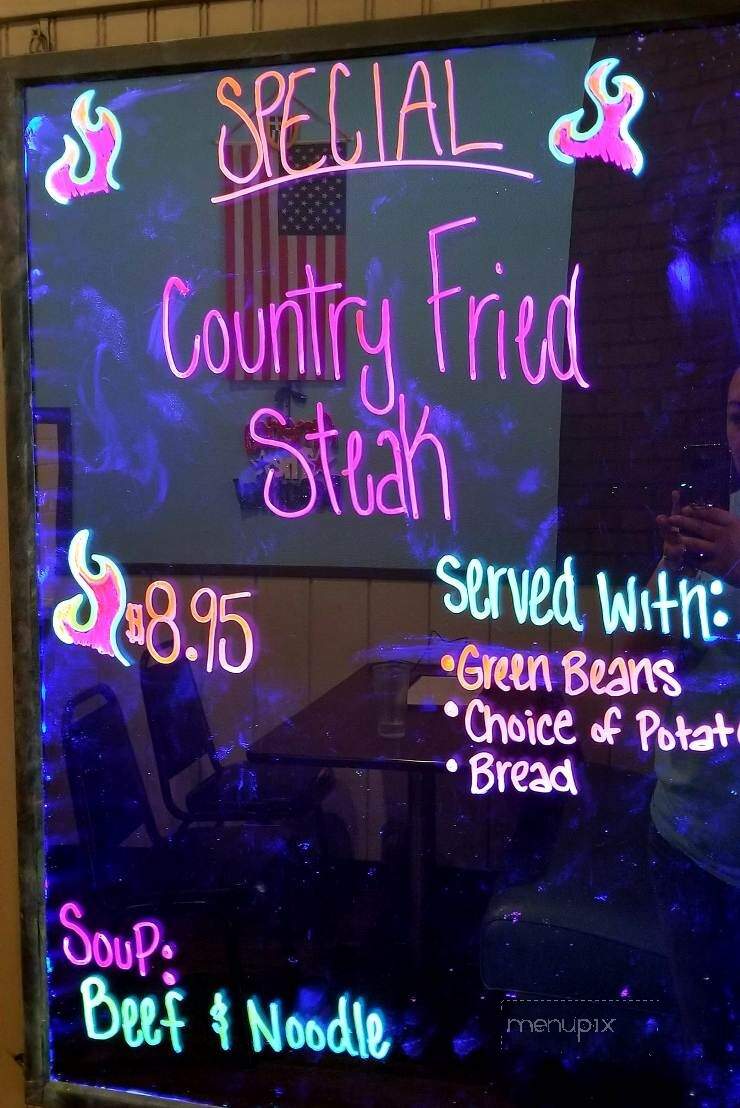 SPECIAL
Country Fried
Steak
$8.95
Served With:
•Green Beans
•Choice of Potat
•Bread
Soup:
Beef & Noodle
menupix